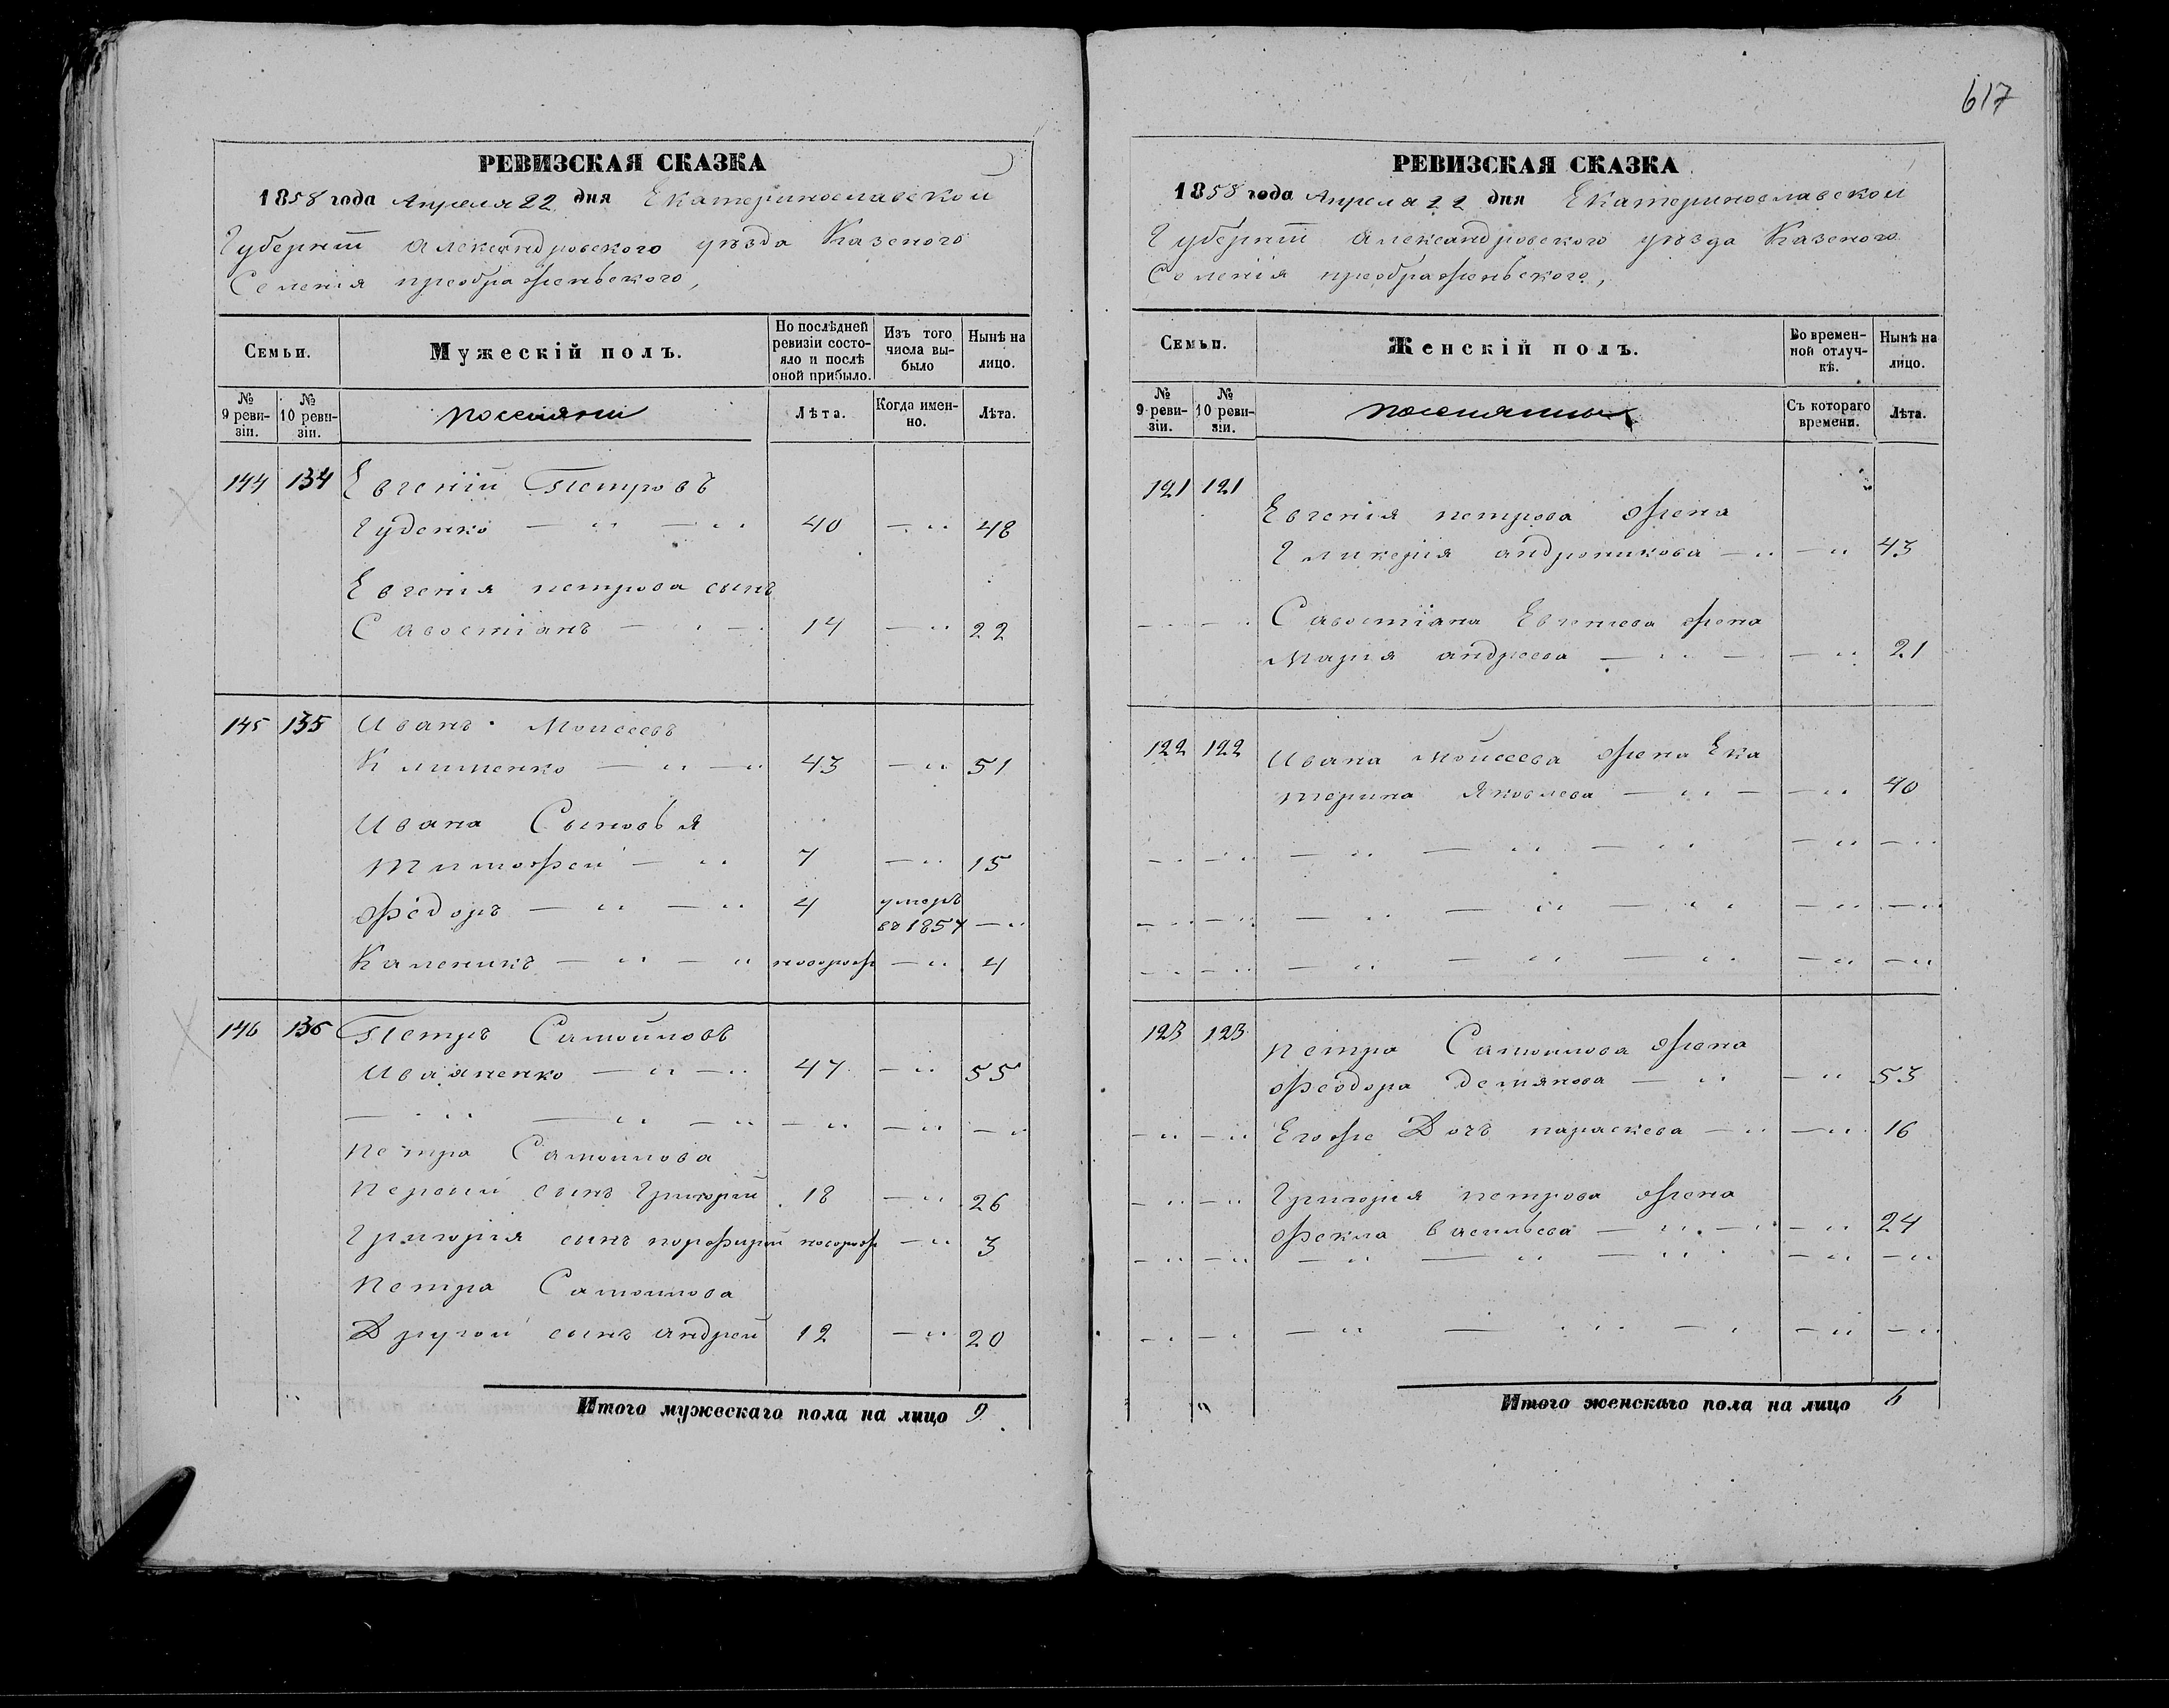 617
РЕВИЗСКАЯ СКАЗКА
1858 года Апреля 22 дня Екатеринославской
Губерніи Александровского уѣзда Казеного
Селенія преображеньского,
Семьи.
Мужескій полъ.
По послѣдней ревизіи состояло и послѣ оной прибыло.
Изъ того числа выбыло
Нынѣ на лицо.
№ 9 ревизіи.
№ 10 ревизіи.
поселяни
Лѣта.
Когда именно.
Лѣта.
144 134 Евгеній Петровъ
Гуденко — " — " 40 — " 48
Евгенія петрова сынъ
Савостіанъ — " — 14 — " 22
145 135 Иванъ Моисеевъ
Клименко — " — " 43 — " 51
Ивана Сыновья
Тимофей — " 7 — " 15
Федоръ — " — " 4 умеръ въ 1857 — "
Каленикъ — " — " новорож — " 4
146 136 Петръ Самойловъ
Иваяненко — " — " 47 — " 55
— " — " — " — " — " — "
Петра Самоилова
Первый сынъ Григорій 18 — " 26
Григорія сынъ порфирій новорож — " 3
Петра Самоилова
Другой сынъ андрей 12 — " 20
Итого мужескаго пола на лицо 9
РЕВИЗСКАЯ СКАЗКА
1858 года Апреля 22 дня Екатеринославской
Губерніи Александровского уѣзда Казеного
Селенія преображеньского,
Семьи.
Женскій полъ.
Во временной отлучкѣ.
Нынѣ на лицо.
№ 9 ревизіи.
№ 10 ревизіи.
Съ котораго времени.
Лѣта.
121 121
Евгенія петрова жена
Гликерія андроникова — " — " 43
— " — " Савостіяна Евгеніева жена
Марія андреева — " — — " 21
122 122 Ивана Моисеева жена Ека
терина Яковлева — " — — " 40
— " — " — " — " — " — " — "
— " — " — " — " — " — " — "
— " — " — " — " — " — " — "
123 123 Петра Самоилова жена
Феодора Демянова — " — " 53
— " — " Егоже Дочь параскева — " — " 16
— " — " Григорія петрова жена
Фекла васильева — " — " — " 24
— " — " — " — " — " — " — "
— " — " — " — " — " — " — "
Итого женскаго пола на лицо 6